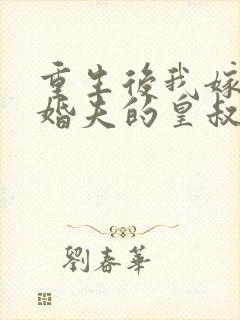 重生後我嫁
婚夫的皇叔
劉春華